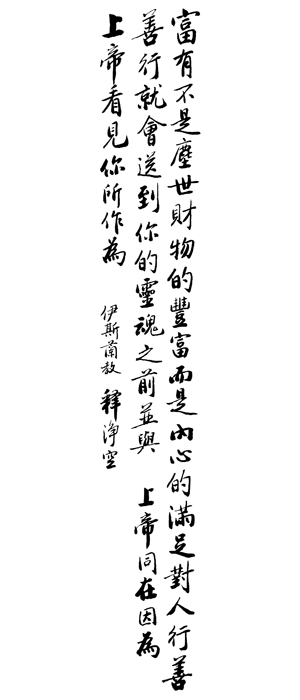 富有不是塵世財物的豐富而是內心的滿足對人行善
善行就會送到你的靈魂之前並與 上帝同在因為
上帝看見你所作為 伊斯蘭教 釋淨空